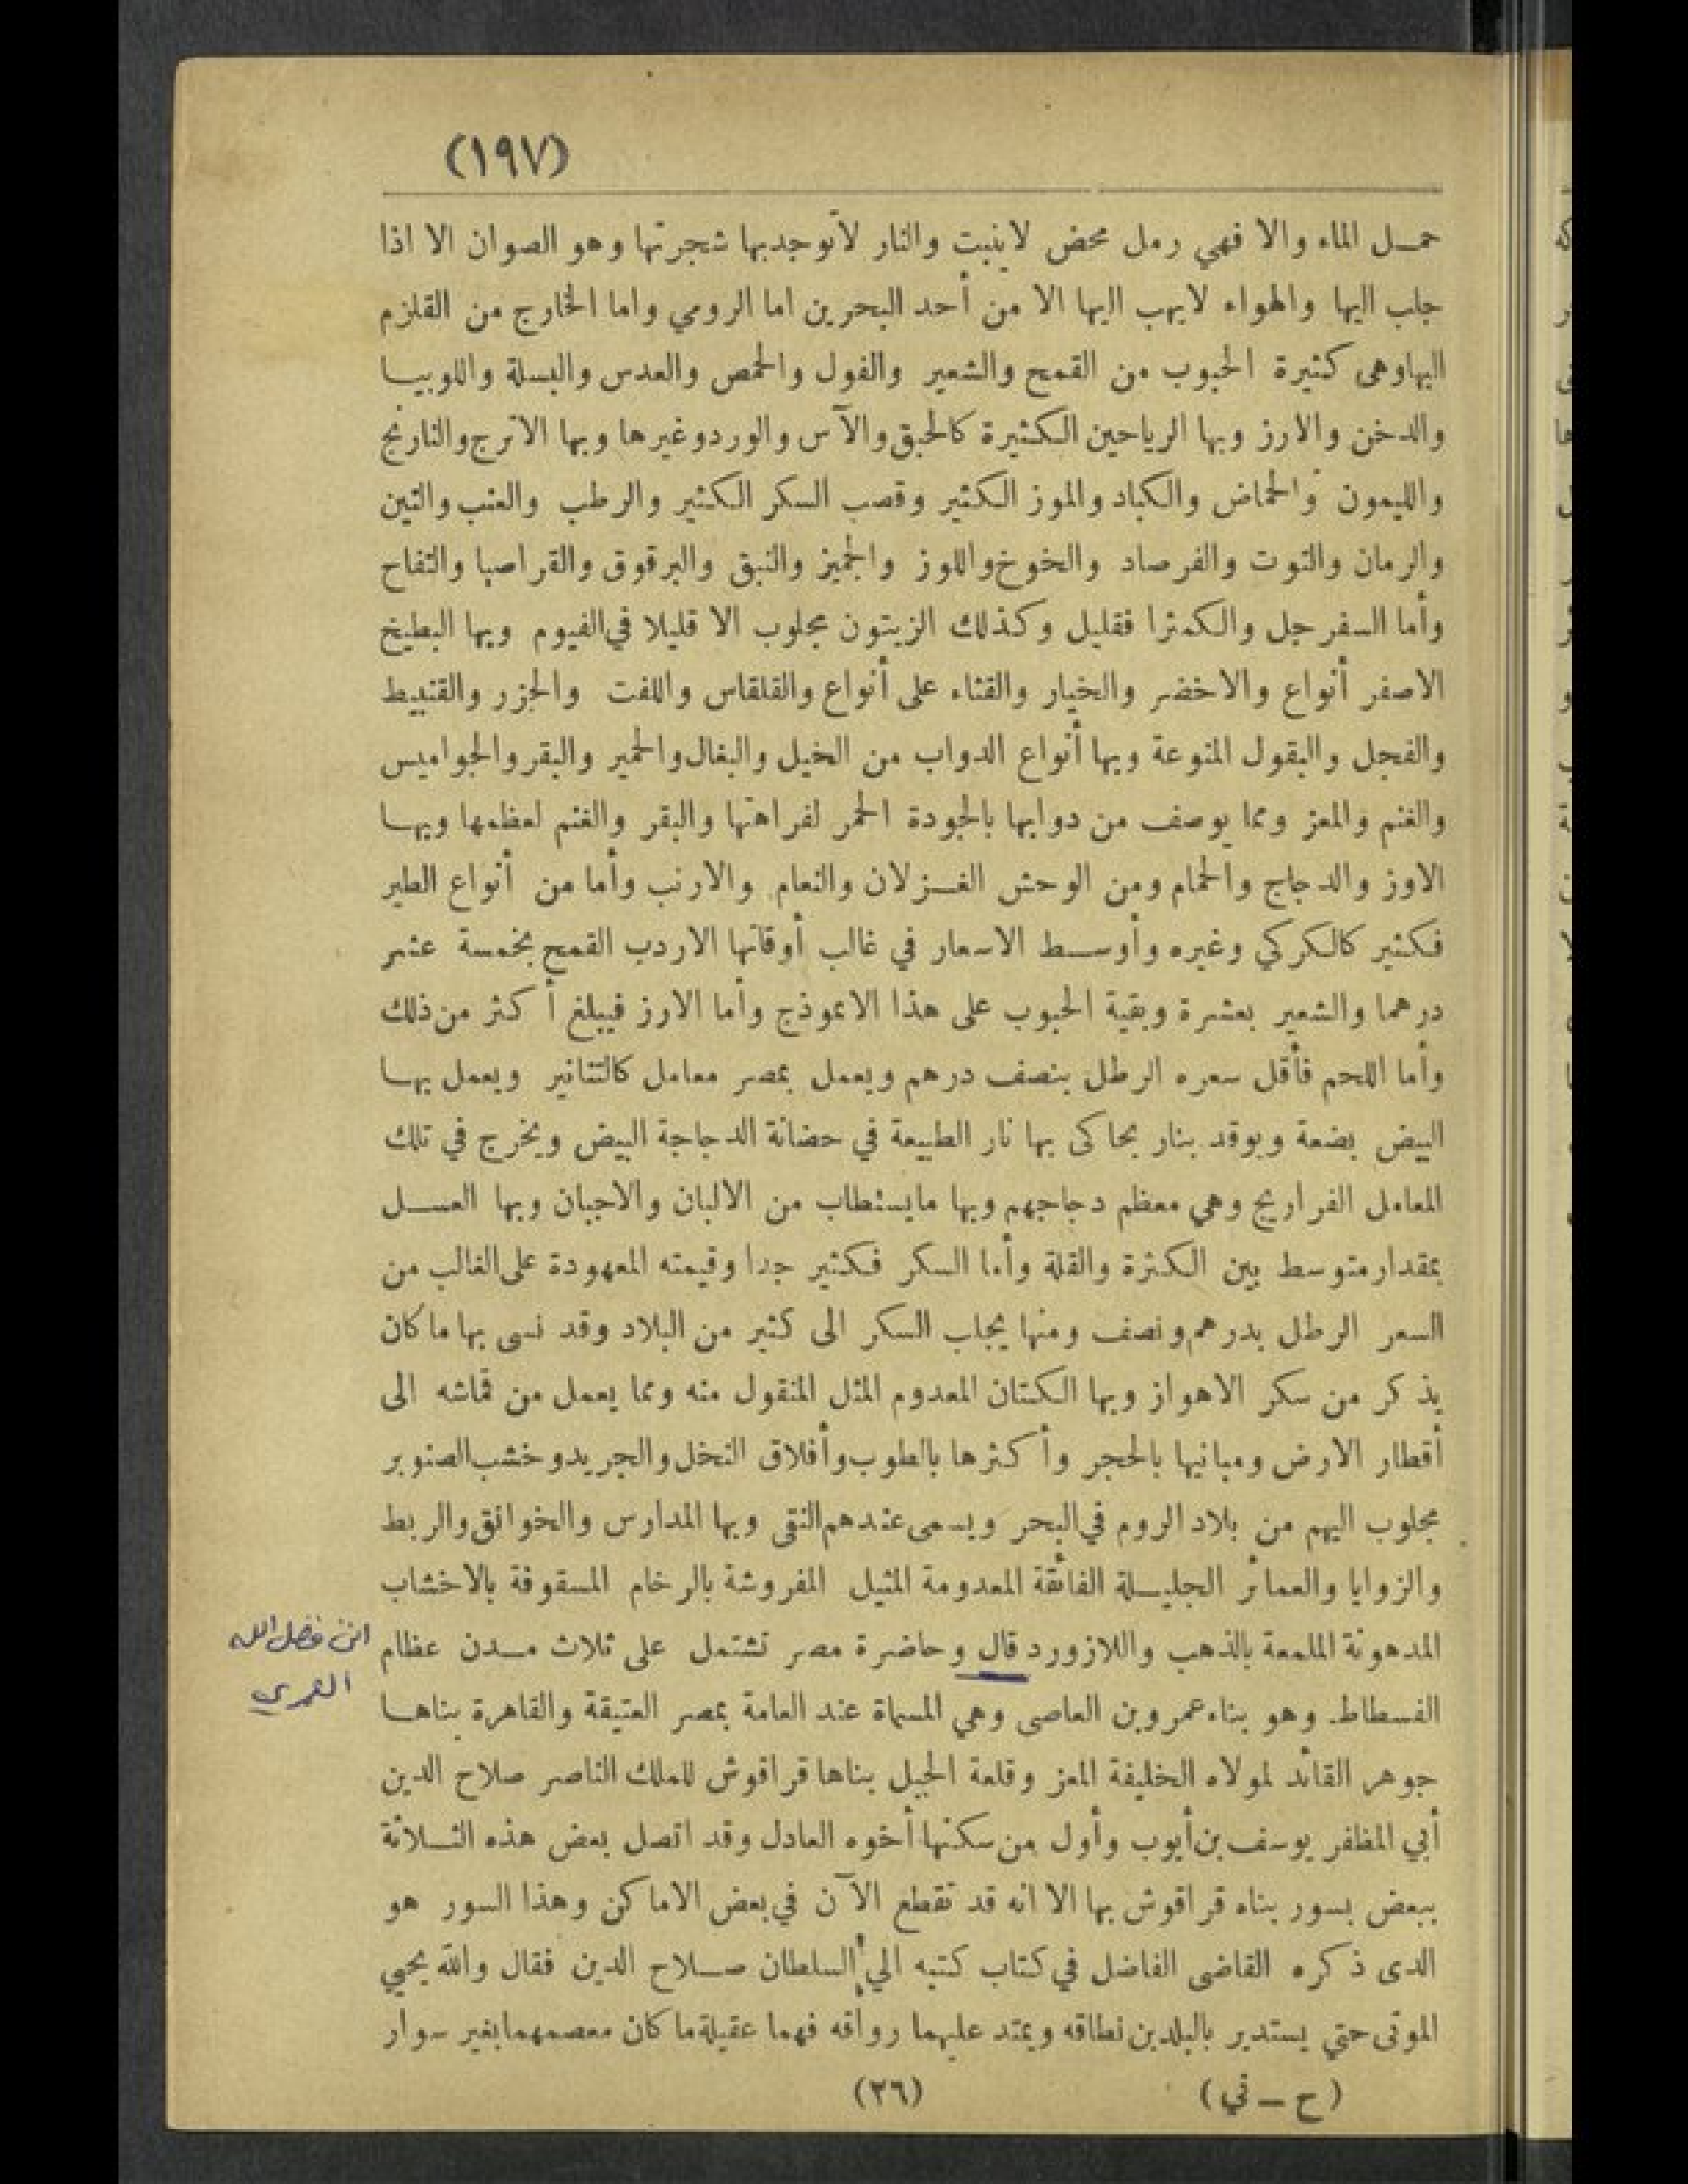 (١٩٧)
حمـل الماء والا فهي رمل محض لاينبت والنار لاتوجدبها شجرتها وهو الصوان الا اذا
جلب اليها والهواء لايهب اليها الا من أحد البحرين اما الرومي واما الخارج من القلزم
اليهاوهى كثيرة الحبوب من القمح والشعير والفول والحمص والعدس والبسلة واللوبيـا
والدخن والارز وبها الرياحين الكثيرة كالحبق والآس والورد وغيرها وبها الاترج والنارنج
والليمون والحماض والكباد والموز الكثير وقصب السكر الكثير والرطب والعنب والتين
والرمان والتوت والفرصاد والخوخ واللوز والجميز والنبق والبرقوق والقراصيا والتفاح
وأما السفرجل والكمثرا فقليل وكذلك الزيتون مجلوب الا قليلا في الفيوم وبها البطيخ
الاصفر أنواع والاخضر والخيار والقثاء على أنواع والقلقاس واللفت والجزر والقنبيط
والفجل والبقول المنوعة وبها أنواع الدواب من الخيل والبغال والحمير والبقر والجواميس
والغنم والمعز ومما يوصف من دوابها بالجودة الحمر لفراهتها والبقر والغنم لعظمها وبهـا
الاوز والدجاج والحمام ومن الوحش الغـزلان والنعام والارنب وأما من أنواع الطير
فكثير كالكركي وغيره وأوسـط الاسعار في غالب أوقاتها الاردب القمح بخمسة عشر
درهما والشعير بعشرة وبقية الحبوب على هذا الانموذج وأما الارز فيبلغ أكثر من ذلك
وأما اللحم فأقل سعره الرطل بنصف درهم ويعمل بمصر معامل كالتنانير ويعمل بهـا
البيض بضعة ويوقد بنار يحاكى بها نار الطبيعة في حضانة الدجاجة البيض ويخرج في تلك
المعامل الفراريج وهي معظم دجاجهم وبها مايستطاب من الالبان والاجبان وبها العسـل
بمقدار متوسط بين الكثرة والقلة وأما السكر فكثير جدا وقيمته المعهودة على الغالب من
السعر الرطل بدرهم ونصف ومنها يجلب السكر الى كثير من البلاد وقد نسى بها ما كان
يذكر من سكر الاهواز وبها الكتان المعدوم المثل المنقول منه ومما يعمل من قماشه الى
أقطار الارض ومبانيها بالحجر وأكثرها بالطوب وأفلاق النخل والجريد وخشب الصنوبر
مجلوب اليهم من بلاد الروم في البحر ويسمى عندهم النقى وبها المدارس والخوانق والربط
والزوايا والعمائر الجليـلة الفائقة المعدومة المثيل المفروشة بالرخام المسقوفة بالاخشاب
المدهونة الملمعة بالذهب واللازورد قال وحاضرة مصر تشتمل على ثلاث مـدن عظام
ابن فضل الله
العمري
الفسطاط. وهو بناء عمرو بن العاصى وهي المسماة عند العامة بمصر العتيقة والقاهرة بناهـا
جوهر القائد لمولاه الخليفة المعز وقلعة الجبل بناها قراقوش للملك الناصر صلاح الدين
أبي المظفر يوسف بن أيوب وأول من سكنها أخوه العادل وقد اتصل بعض هذه الثـلاثة
ببعض بسور بناه قراقوش بها الا انه قد تقطع الآن في بعض الاماكن وهذا السور هو
الذى ذكره القاضى الفاضل في كتاب كتبه الي السلطان صـلاح الدين فقال والله يحيي
الموتى حتي يستدير بالبلدين نطاقه ويمتد عليهما رواقه فهما عقيلة ما كان معصمهما بغير سوار
(ح ـ ني) (٢٦)